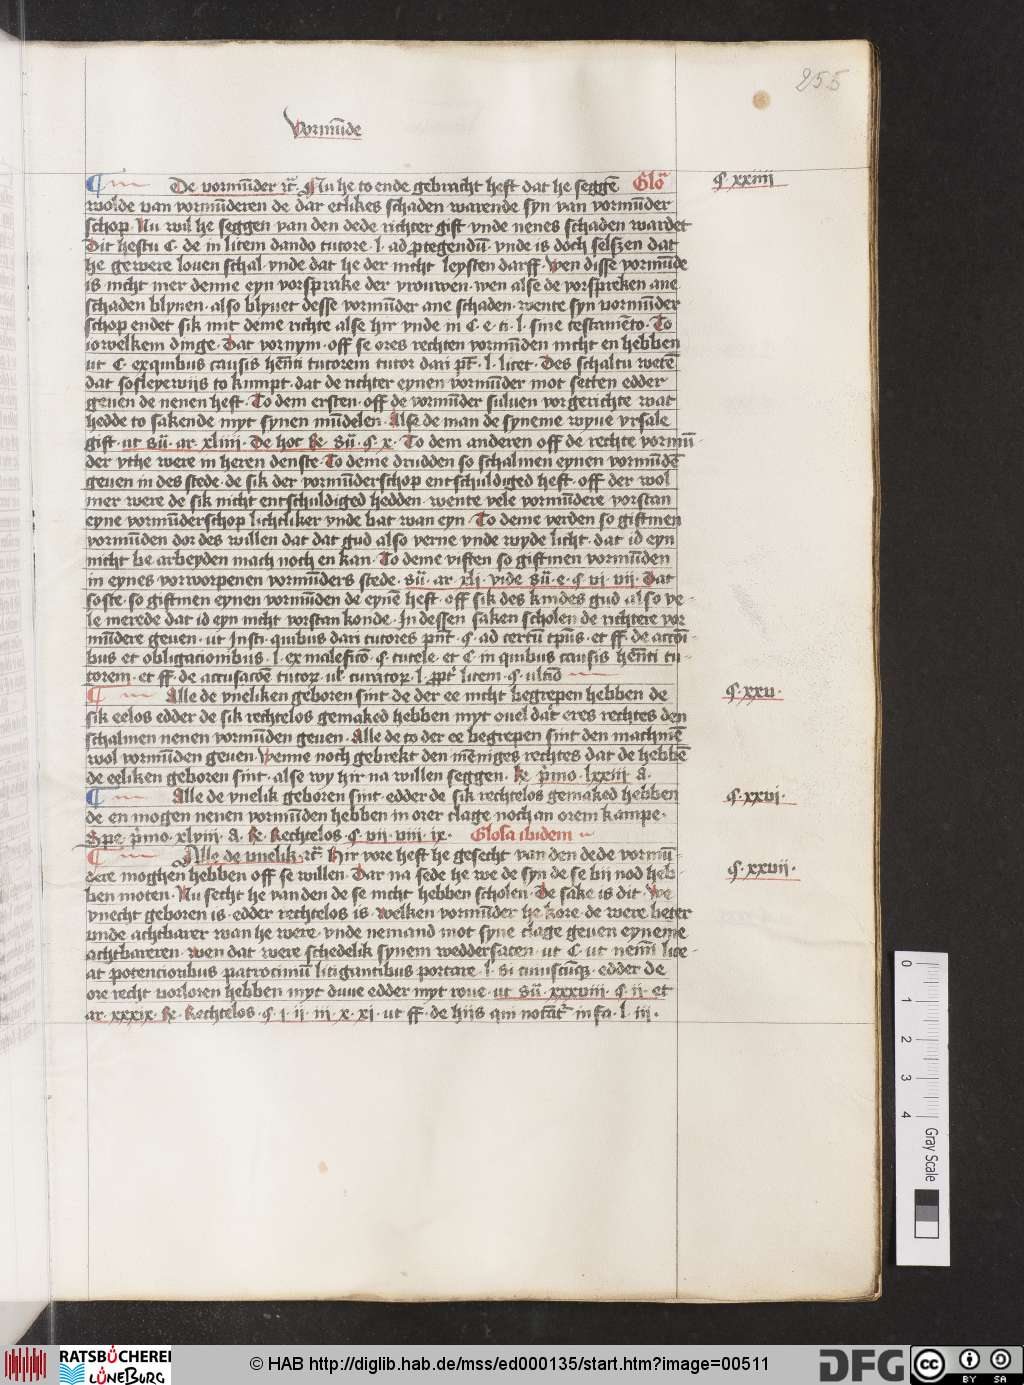 255
Vormūde
De vormūder ꝛc̄. Nu he to ende gebracht heft dat he seggē Glo᷒ ꝯ xxiiii
wolde van vormūderen de dat etlikes schaden warende syn van vormūder
schop. Nu wil he seggen van den dede richter gift vnde nenes schaden wardet
Dit hestu C. de in litem dando tutore. l. ad ꝓtegendū. vnde is doch selszen dat
he gewere louen schal vnde dat he der nicht leysten darff. wen disse vormūde
is nicht mer denne eyn vorsprake der vrouwen. wen alse de vorspreken ane
schaden blyuen. also blyuet desse vormūder ane schaden. wente syn vormūder
schop endet sik mit deme richte alse hir vnde in C. e. ti. l. sine testamēto. To
iowelkem dinge. Dat vornym. off se ores rechten vormūden nicht en hebben
ut C. exquibus causis hēnti tutorem tutor dari pt̄. l. licet. Des schaltu wetē
dat sosleyewijs to kumpt. dat de richter eynen vormūder mot setten edder
geuen de nenen heft. To dem ersten. off de vormūder suluen vor gerichte wat
hedde to sakende myt synen mūdelen. Alse de man de syneme wyue vrsale
gift. ut sū. ar. xliiii. De hoc Re. sū. ꝯ x. To dem anderen off de rechte vormū-
der vthe were in heren denste. To deme drudden so schalmen eynen vormūdē
geuen in des stede. de sik der vormūderschop entschuldiged heft. off der wol
mer were de sik nicht entschuldiged hedden. wente vele vormūdere vorstan
eyne vormūderschop lichtliker vnde bat wan eyn. To deme verden so giftmen
vormūden dor des willen dat dat gud also verne vnde wyde licht. dat id eyn
nicht be arbeyden mach noch en kan. To deme viften so giftmen vormūden
in eynes vorworpenen vormūders stede. sū. ar. xli. vide sū. e. ꝯ vi. vii. Dat
soste. so giftmen eynen vormūden de eynē heft. off sik des kindes gud also ve-
le merede dat id eyn nicht vorstan konde. In dessen saken scholen de richtere vor
mūdere geuen. ut Insti. quibus dari tutores pn̄t. ꝯ. ad certū tp̄us. et ff. de accōi-
bus et obligacionibus. l. ex maleficō. ꝯ. tutele. et C. in quibus causis hēnti tu-
torem. et ff. de accusacōe tutoꝝ. ul̄. curatoꝝ. l. ꝓpt̄ litem. ꝯ. ultīo
Alle de vneliken geboren sint. de der ee nicht begrepen hebben de ꝯ. xxv.
sik eelos edder de sik rechtelos gemaked hebben myt ouel dat eres rechtes den
schalmen nenen vormūden geuen. Alle de to der ee begrepen sint den machmē
wol vormūden geuen. Wenne noch gebrekt den mēniges rechtes dat de hebbē
de eeliken geboren sint. alse wy hir na willen seggen. Re p̄mo. lxxiii a.
Alle de vnelik geboren sint. edder de sik rechtelos gemaked hebben ꝯ. xxvi.
de en mogen nenen vormūden hebben in orer clage noch an orem kampe.
Spe. p̄mo. xlviii. a. Re. Rechtelos. ꝯ. vii. viii. ix. Glosa ibidem
Alle de vnelik. ꝛc̄. Hir vore heft he gesecht van den dede vormū- ꝯ. xxvii.
dere moghen hebben off se willen. Dar na sede he we de syn de se bij nod heb-
ben moten. Nu secht he van den de se nicht hebben scholen. De sake is dit. We
vnecht geboren is. edder rechtelos is. welken vormūder he kore. de were beter
vnde achtbarer wan he were. vnde nemand mot syne clage geuen eyneme
achtbareren. wen dat were schedelik synem weddersaten. ut C. ut nemī lice-
at potencioribus patrocinūi litigantibus portare. l. si cuiuscūqꝫ. edder de
ore recht vorloren hebben myt duue edder myt roue. ut sū. xxxviii. ꝯ. ii. et
ar. xxxix. Re. Rechtelos. ꝯ. i. ii. iii. x. xi. ut ff. de hiis qui notāt᷑ infa. l. iii.
0 1 2 3 4 Gray Scale
RATSBÜCHEREI
LÜNEBURG
© HAB http://diglib.hab.de/mss/ed000135/start.htm?image=00511
DFG
cc BY SA